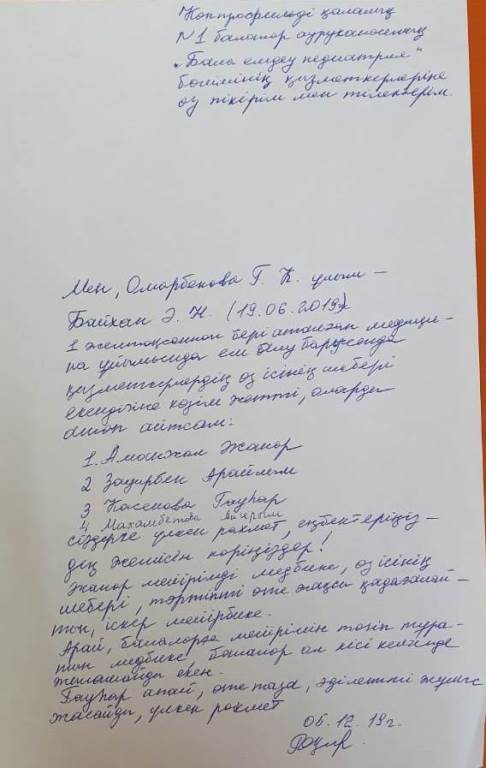 Көппрофильді қалалық
№1 балалар ауруханасының
„Балы емдеу педиатрия"
бөлімінің қызметкерлеріне
өз пікірім мен тілектерім.
Мен, Омарбекова Г. К. ұлым –
Байхан Ә. Н. (19.06.2019ж)
1 желтоқсаннан бері аталған медици-
на ұйымында ем алу барысында
қызметкерлердің өз ісінің шебері
екендігіне көзім жетті, оларды
атап айтсам:
1. Аманжол Жанар
2 Зауырбек Арайлым
3 Касенова Гауһар
4 Махамбетова
сіздерге үлкен рахмет, еңбектеріңіз-
дің жемісін көріңіздер!
Жанар мейірімді медбике, өз ісінің
шебері, тәртіпті өте жақсы қадағалай-
тын, іскер мейірбике.
Арай, балаларға мейірімін төгіп тұра-
тын медбике, балалар ол кісі келгенде
жыламайды екен.
Гауһар апай, өте таза, әділетті жұмыс
жасайды, үлкен рахмет
06.12.19г.